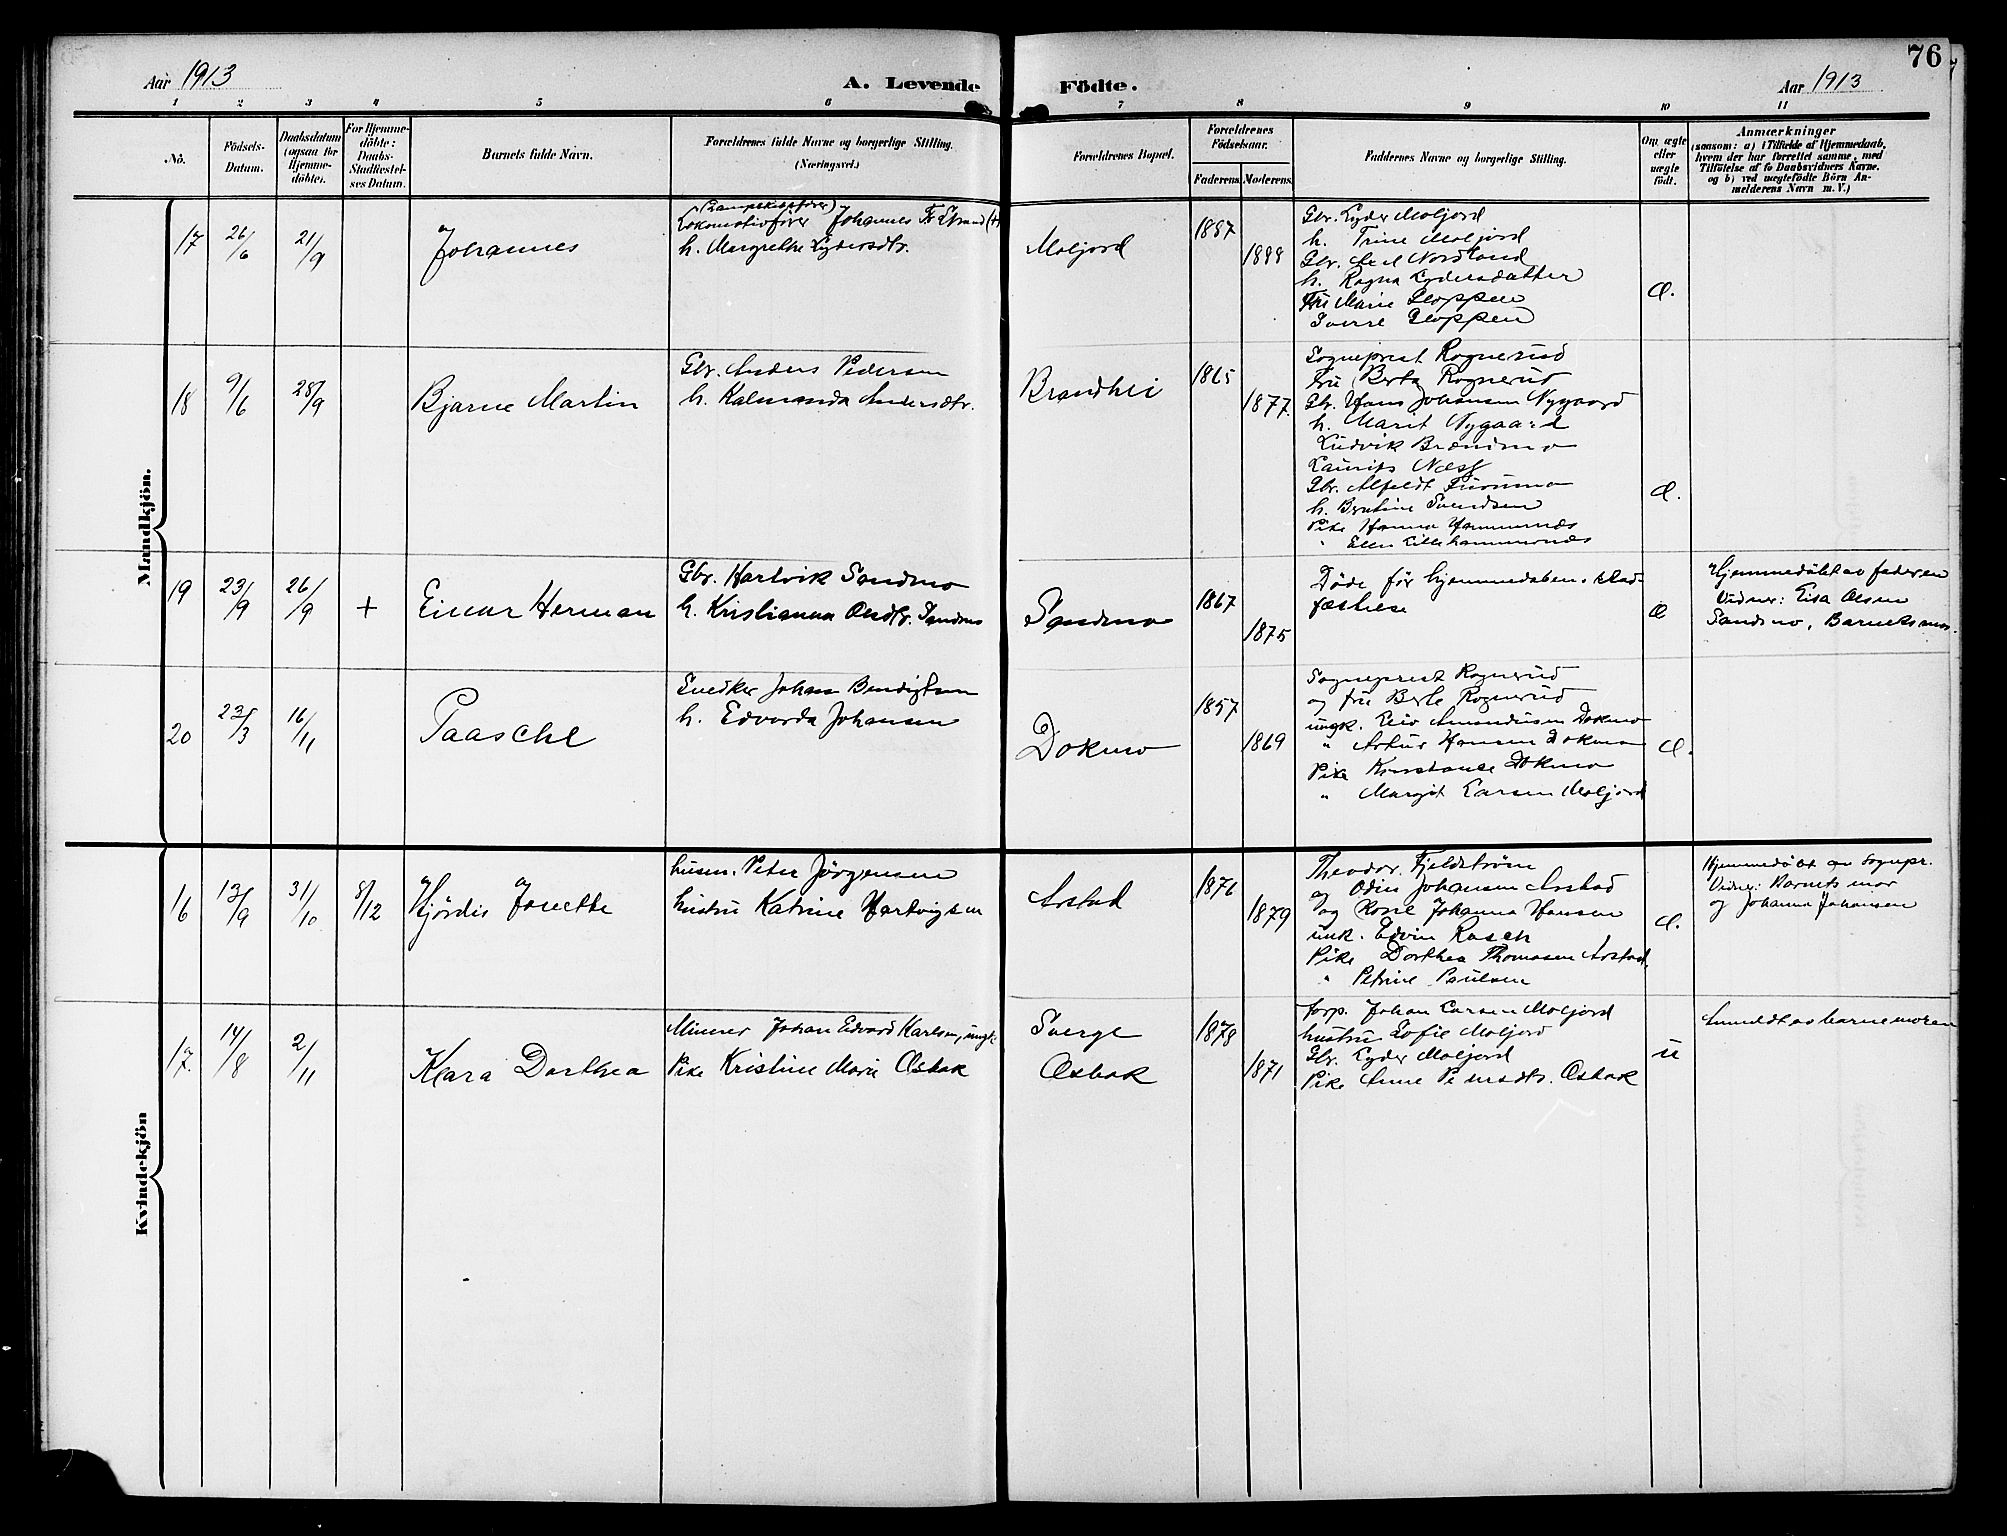 76
Aar 1913
A. Levende Födte.
Aar 1913
1 2 3 4 5 6 7 8 9 10 11
No.
Födsels-
Datum.
Daabsdatum
(ogsaa for
Hjemme-
döbte).
For Hjemme-
döbte:
Daabs-
Stadfæstel-
ses Datum.
Barnets fulde Navn.
Forældrenes fulde Navne og borgerlige Stilling.
(Næringsvei.)
Forældrenes Bopæl.
Forældrenes
Födselsaar.
Faderens. Moderens.
Faddernes Navne og borgerlige Stilling.
Om ægte
eller
uægte
födt.
Anmærkninger
(saasom: a) i Tilfælde af Hjemmedaab,
hvem der har forrettet samme, med
Tilföielse af to Daabsvidners Navne.
og b) ved uægtefödte Börn An-
melderens Navn m. V.)
Mandkjön.
17 26/6 21/9 Johannes
Lokomotivfører Johannes Strand (+)
h. Margrethe Lydersdtr.
Moljord
1887
1888
Gbr. Lyder Moljord
h. Trine Moljord
Gbr. Axel Nordland
h. Ragna Lydersdatter
Fru Marie Gloppen
Sverre Gloppen
Æ.
18 9/6 28/9 Bjarne Martin
Gbr. Anders Pedersen
h. Kalmanda Andersdtr.
Brandhei
1865
1877.
Sogneprest Rognerud
Fru Berta Rognerud
Gbr. Hans Johansen Nygaard
h. Marit Nygaard
Ludvik Brændmo
Laurits Næss
Gbr. Alfeldt Furumo
h. Bertine Svendsen
Pike Hanna Hammernæs
" Ellen Lillehammernæs
Æ.
19 23/9 26/9 + Einar Herman
Gbr. Hartvik Sandmo
h. Kristianna Olsdtr. Sandmo
Sandmo
1867
1875
Døde før hjemmedaabens stad-
fæstelse
Æ
Hjemmedøbt av faderen
Vidner: Elsa Olsen
Sandmo, Barnets mor.
20 23/3 16/11 Paasche
Snedker Johan Bendigtsen
h. Edvarda Johansen
Dokmo
1857
1869
Sogneprest Rognerud
og fru Berte Rognerud
ungk. Amandusen Dokmo
" Artur Hansen Dokmo
Pike Konstanse Dokmo
" Margit Larsen Moljord
Æ.
Kvindekjön
16 13/9 31/10 8/12 Hjørdis Josette
husm. Peter Jörgensen
hustru Katrine Hartvigsen
Arstad
1876
1879
Theodor Fjeldstrøm
og Odin Johansen Arstad
og Rose Johanna Hansen
unk. Edvin Rasch
Pike Dorthea Thomasen Arstad,
" Petrine Paulsen
Æ.
Hjemmedøbt av Sognepr.
Vidner: Barnets mor
og Johanna Johansen
17. 14/8 2/11 Klara Dorthea
Minner Johan Edvard Karlsen, ungk.
Pike Kristine Marie Osbak
Sverge
Osbak
1878
1871
forp. Johan Larsen Moljord
hustru Sofie Moljord
Gbr. Lyder Moljord
Pike Anne Pedersdtr. Osbak
u
Anmeldt av barnemoren